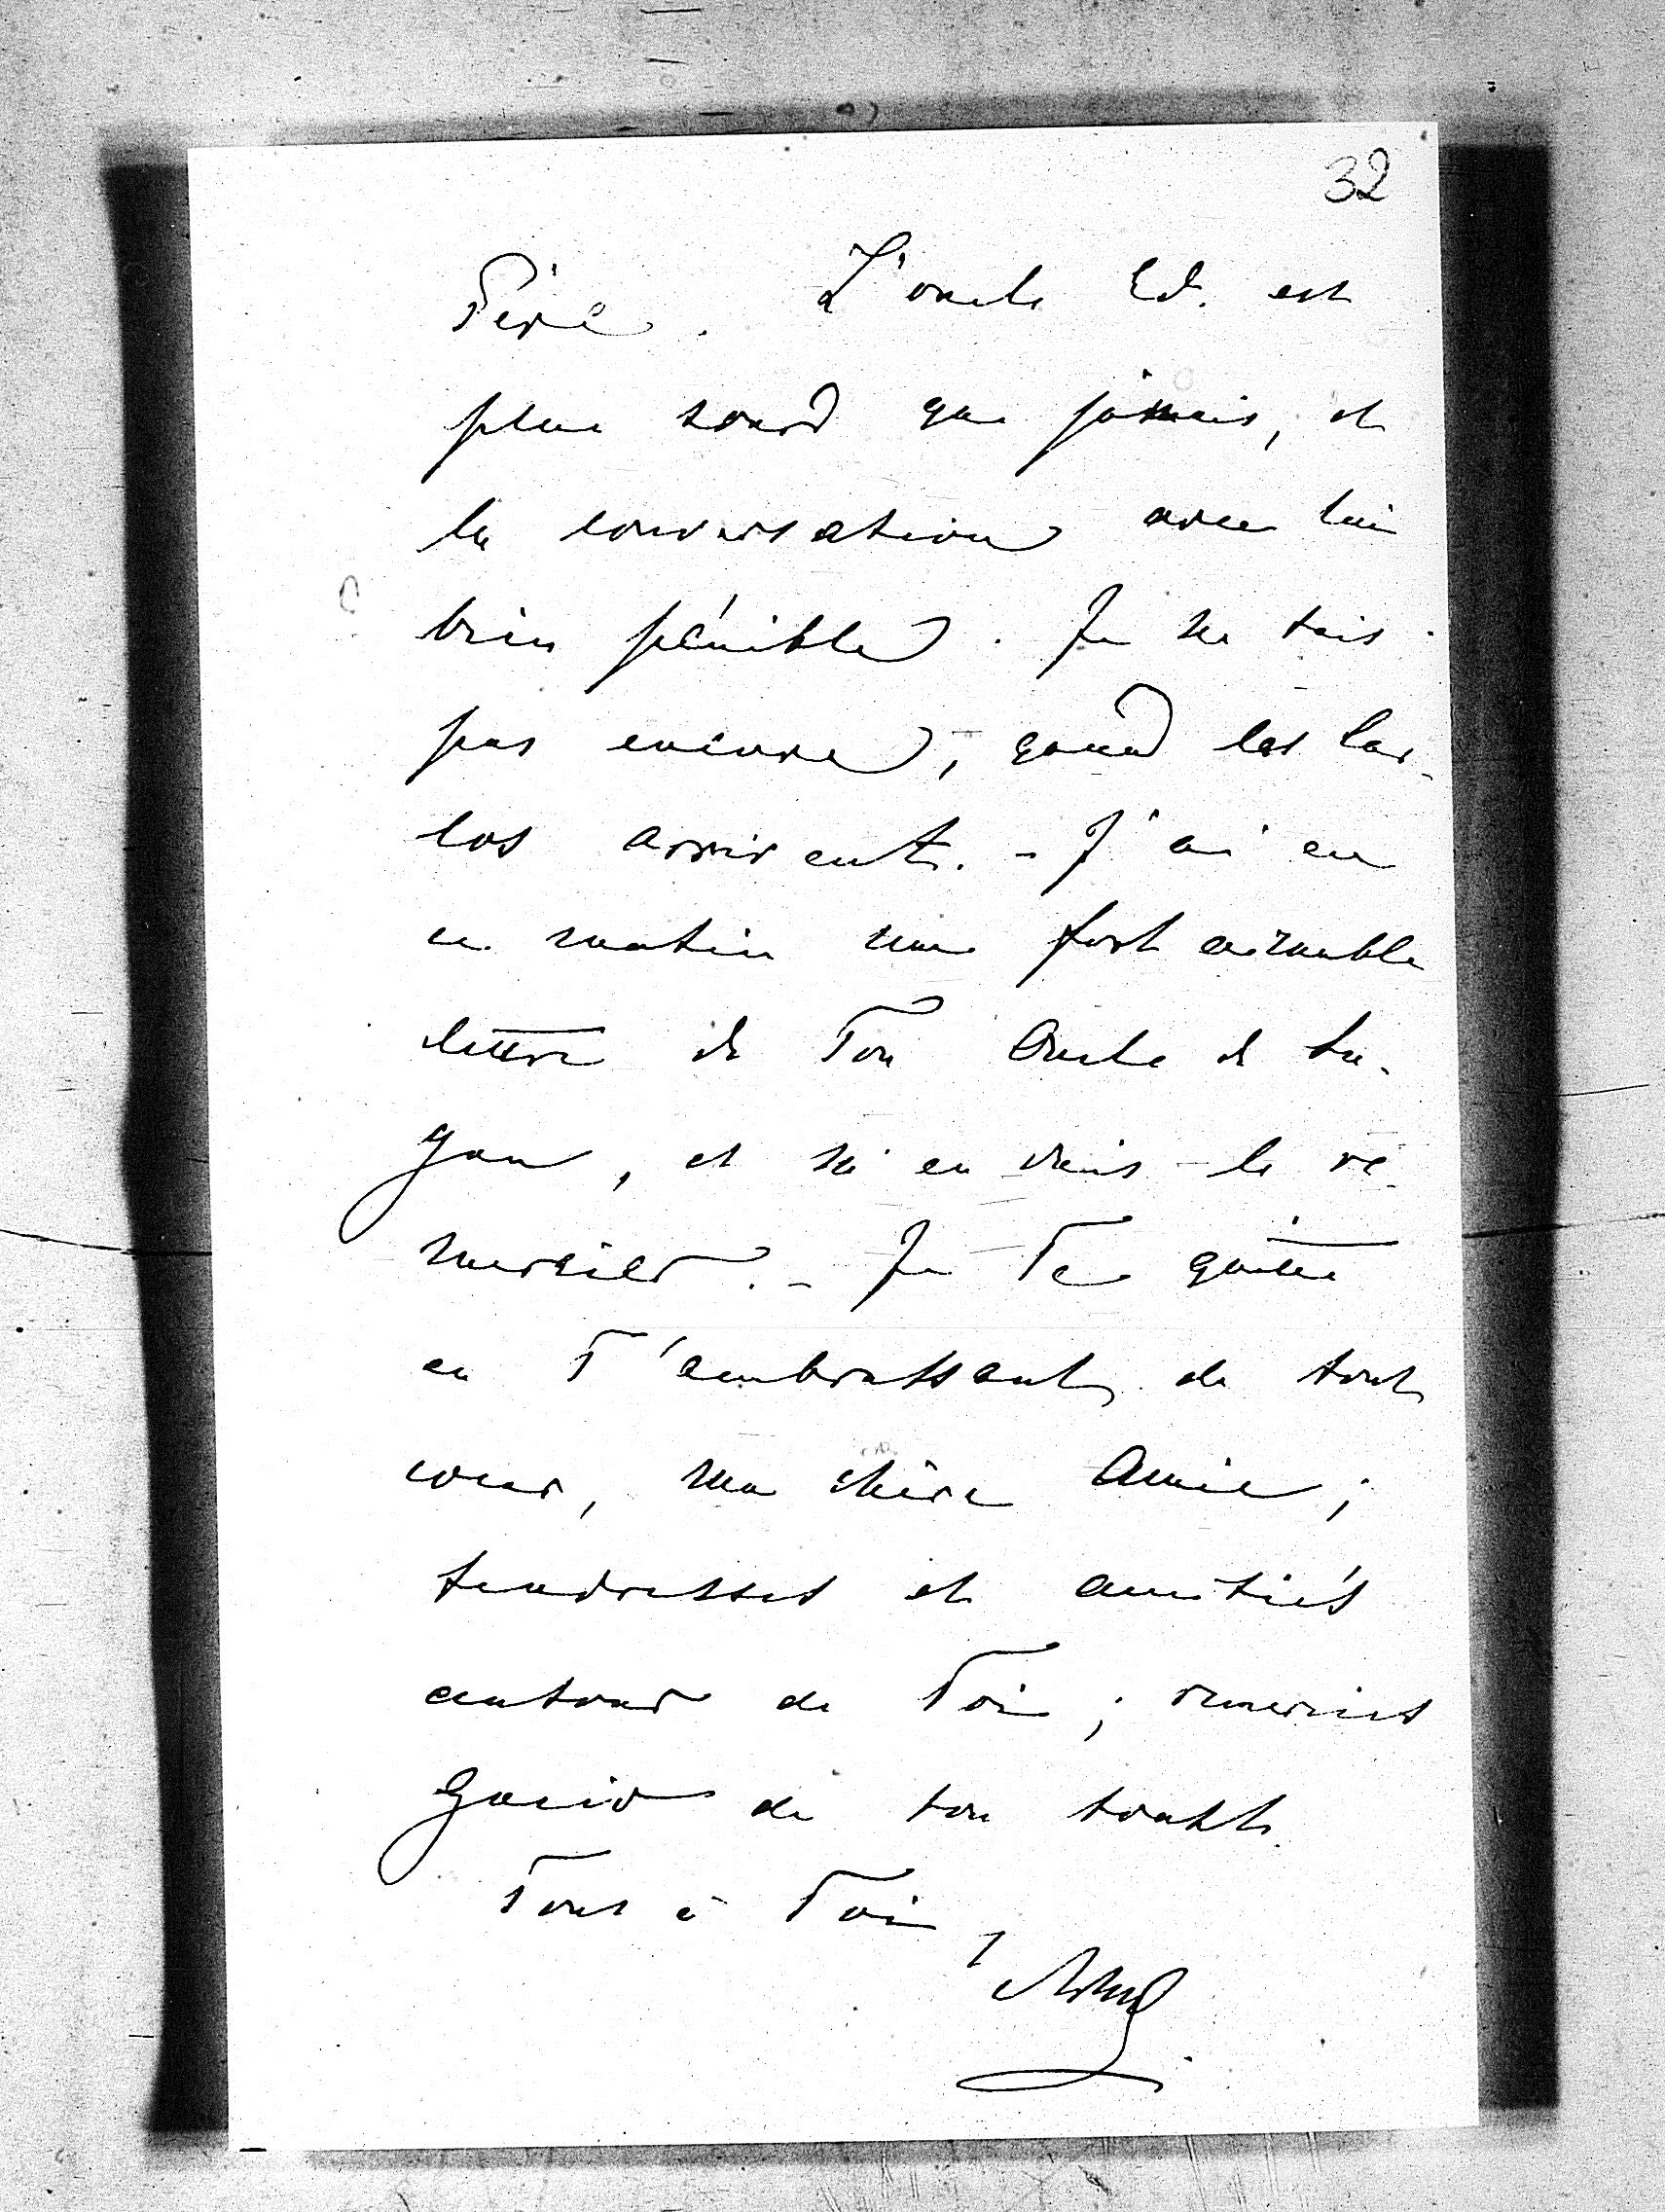 32
Père. L'oncle Ed. est
plus sourd que jamais, et
la conversation avec lui
bien pénible. Je ne sais
pas encore, quand les Car-
los arrivent. - J'ai eu
ce matin une fort aimable
lettre de Ton Oncle de Lu-
gano, et j'en vais le re-
mercier. - Je Te quitte
en T'embrassant de tout
coeur, ma chère Amie;
tendresses et amitiés
autour de Toi; remercies
de ton
Tout à Toi,